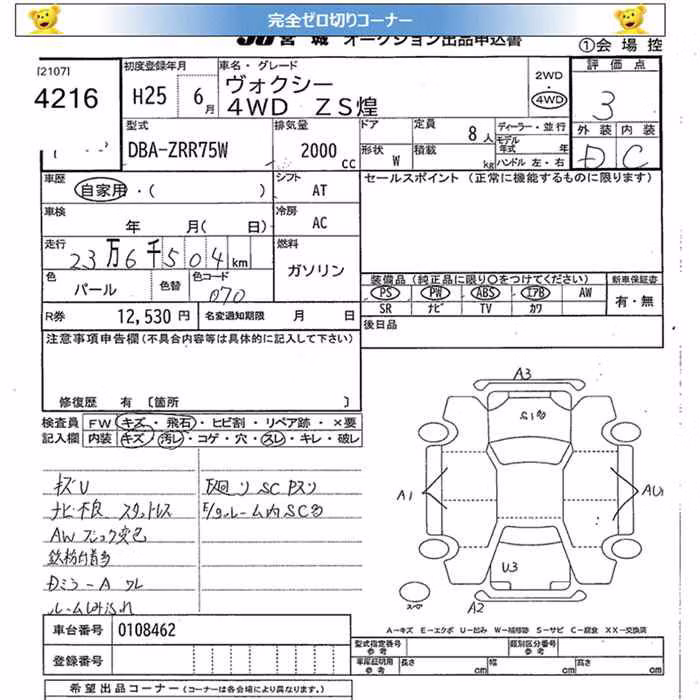 完全ゼロ切りコーナー
JU 宮城 オークション出品申込書
①会場控
[2107]
4216
初度登録年月
H25 6月
車名・グレード
ヴォクシー
4WD ZS煌
2WD
4WD
評価点
3
外装 内装
D C
型式
DBA-ZRR75W
排気量
2000 cc
ドア
形状 W
定員 8人
積載 kg
ディーラー・並行
モデル年式 年
ハンドル 左・右
車歴
自家用・( )
シフト AT
セールスポイント (正常に機能するものに限ります)
車検
年 月( 日)
冷房 AC
走行
23万6千504km
燃料
ガソリン
色
パール
色替
色コード
070
装備品 (純正品に限り〇をつけてください)
新車保証書
PS PW ABS エアB AW
SR ナビ TV カワ
有・無
R券 12,530円
名変通知期限 月 日
後日品
注意事項申告欄(不具合内容等は具体的に記入して下さい)
修復歴 有 〔箇所 〕
検査員
記入欄
FW キズ・飛石・ヒビ割・リペア跡・×要
内装 キズ・汚レ・コゲ・穴・スレ・キレ・破レ
キズU
ナビ不良 スタッドレス
AWブレーキ変色
鉄粉付着多
DミラーA ワレ
下廻りSC
ルーム内SC多
A3
S1多
A1
AU1
U3
A2
スペア
A-キズ E-エクボ U-凹み W-補修跡 S-サビ C-腐食 XX-交換済
車台番号 0108462
登録番号
型式指定番号
参考
類別区分番号
参考
車庫証明用
参考
長さ cm
幅 cm
高さ cm
希望出品コーナー (コーナーは各会場により異なります。)